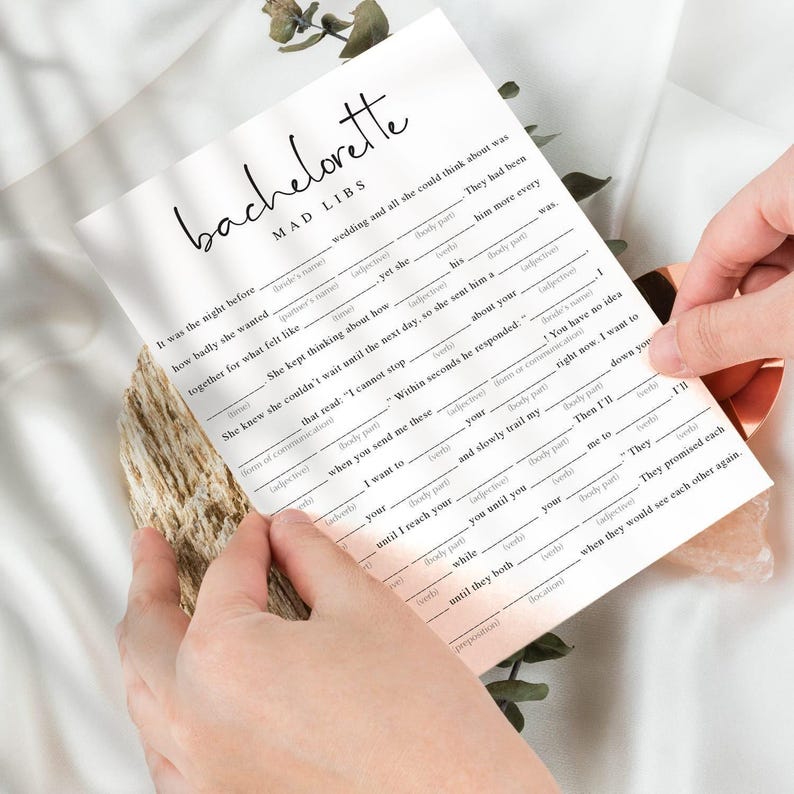 bachelorette
MAD LIBS
It was the night before ________ wedding and all she could think about was
(bride's name)
how badly she wanted ________ ________ ________. They had been
(partner's name) (adjective) (body part)
together for what felt like ________, yet she ________ him more every
(time) (verb)
________. She kept thinking about how ________ his ________ was.
(time) (adjective) (body part)
She knew she couldn't wait until the next day, so she sent him a ________
(adjective)
________ that read: "I cannot stop ________ about your ________,
(form of communication) (verb) (adjective)
________ ________." Within seconds he responded: "________, I
(adjective) (body part) (bride's name)
________ when you send me these ________ ________! You have no idea
(verb) (adjective) (form of communication)
________ I want to ________ your ________ right now. I want to
(adverb) (verb) (body part)
________ your ________ and slowly trail my ________ down you
(body part) (body part)
until I reach your ________ ________. Then I'll ________, I'll
(adjective) (body part) (verb)
________ you until you ________ me to ________
(body part) (verb) (verb)
while ________ your ________." They ________
(verb) (verb) (body part) (verb)
until they both ________ ________. They promised each
(verb) (adjective)
________ ________ when they would see each other again.
(preposition) (location)